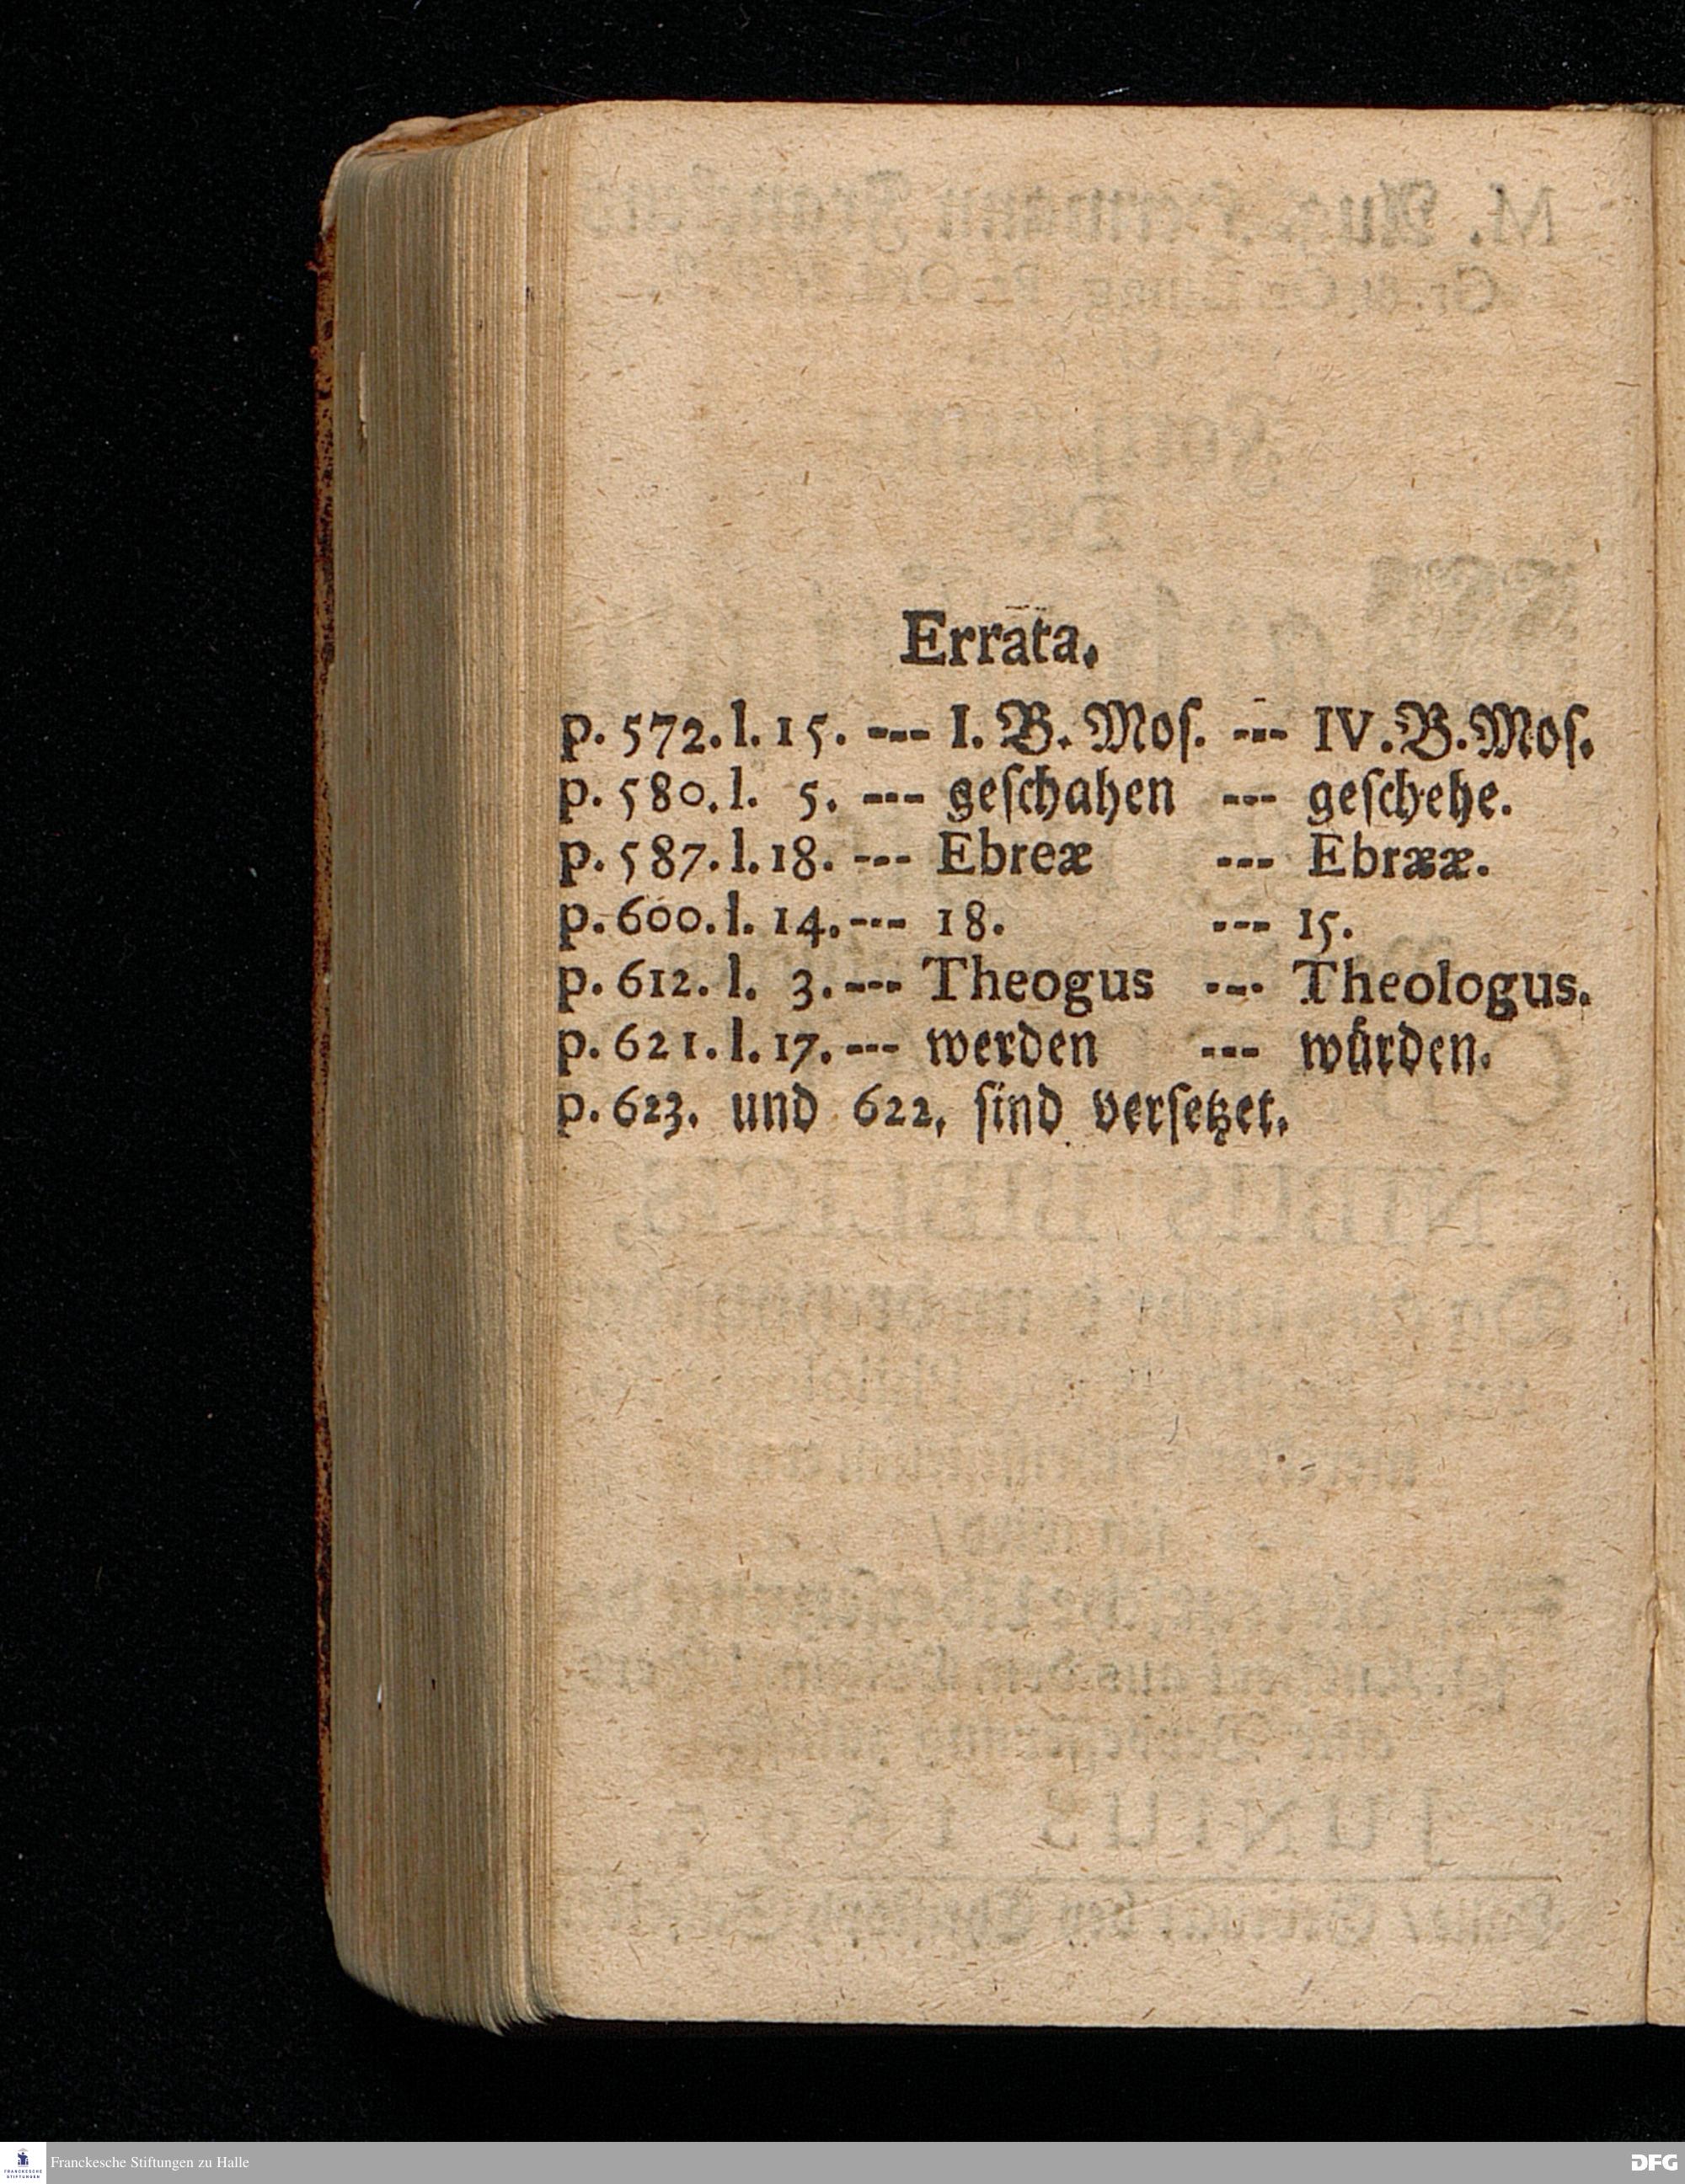 Errata.
p. 572. l. 15. --- I. B. Moſ. --- IV. B. Moſ.
p. 580. l. 5. --- geſchahen --- geſchehe.
p. 587. l. 18. --- Ebreæ --- Ebrææ.
p. 600. l. 14. --- 18. --- 15.
p. 612. l. 3. --- Theogus --- Theologus.
p. 621. l. 17. --- werden --- wuͤrden.
p. 623. und 622. ſind verſetzet.
FRANCKESCHE
STIFTUNGEN
Franckesche Stiftungen zu Halle
DFG